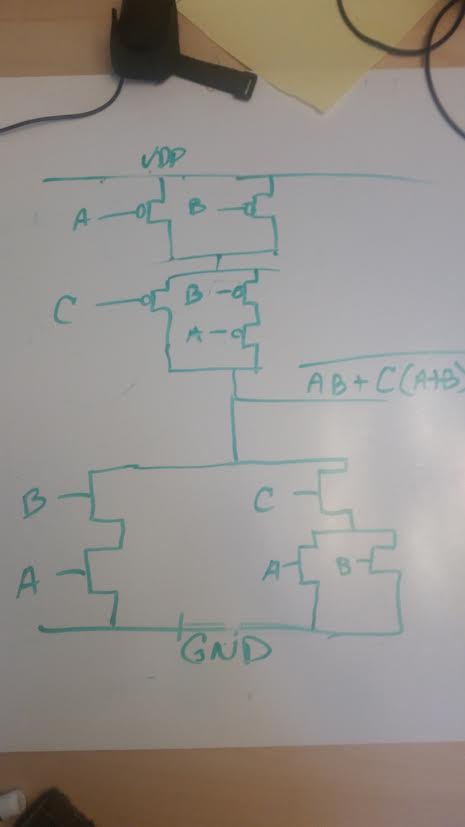 VDD
A B
C B
A
AB + C(A+B)
B C
A A B
GND